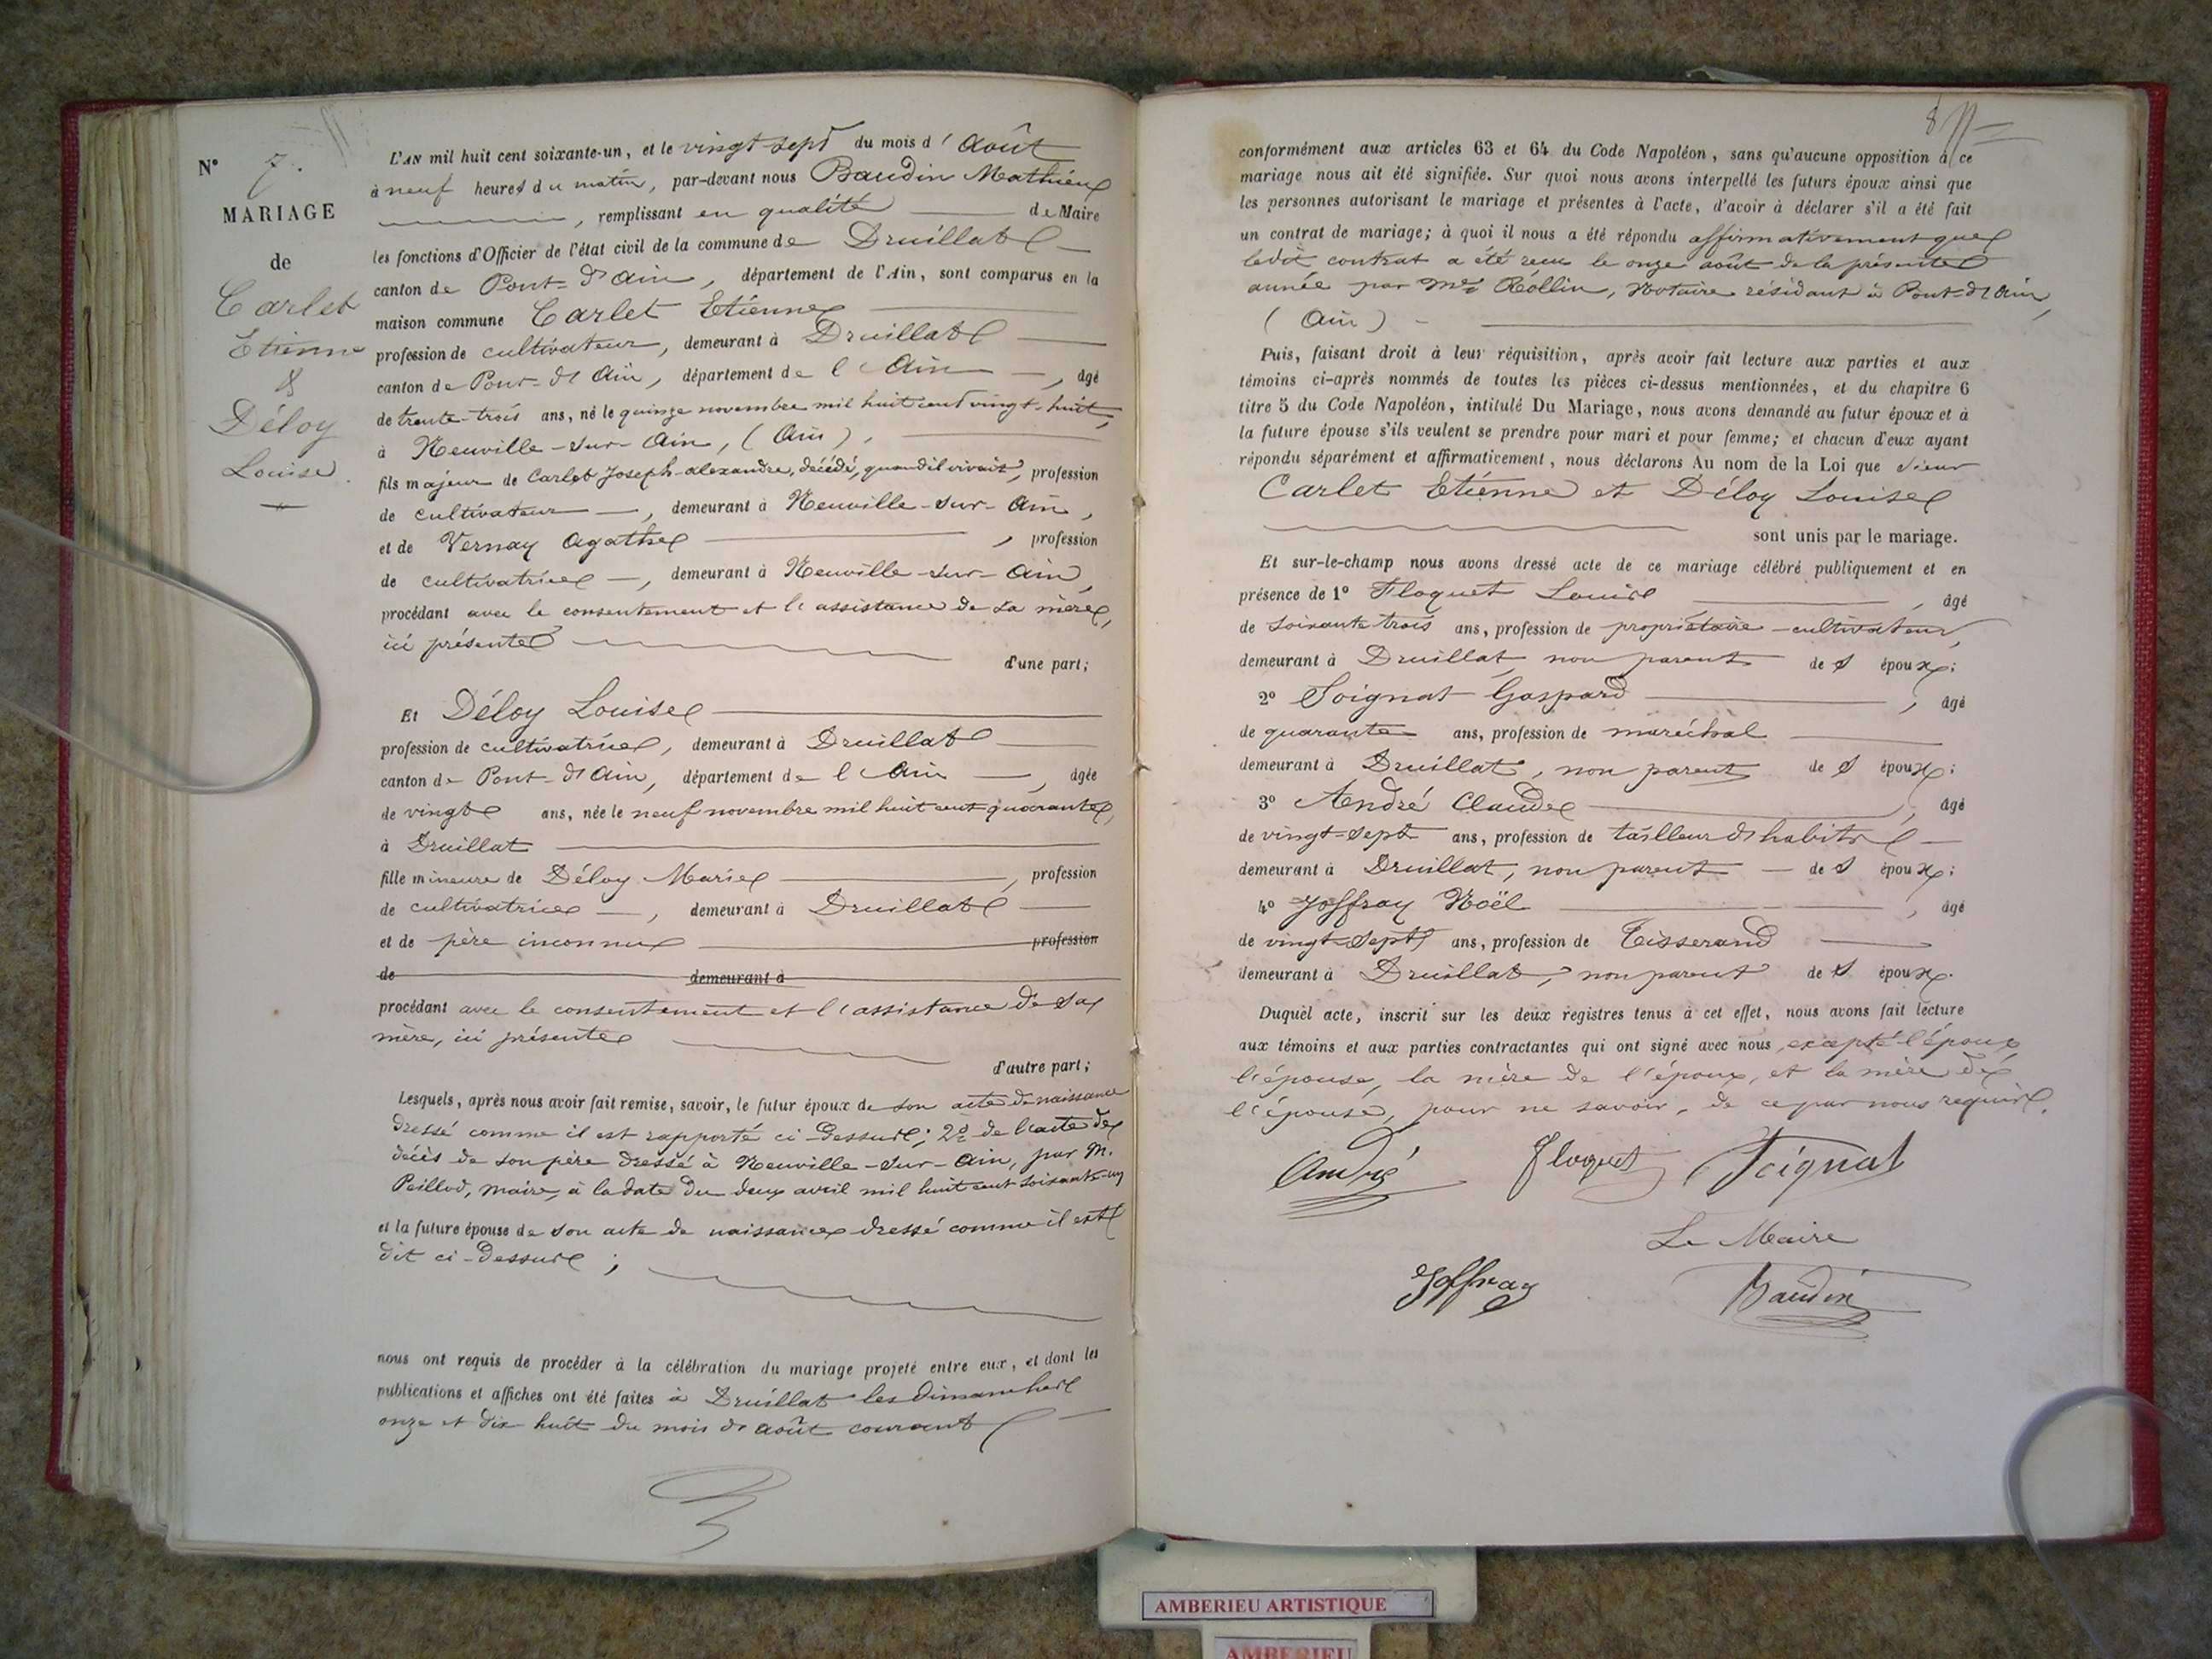 N° 7.
MARIAGE
de
Carlet
Etienne
&
Déloy
Louise.
L'AN mil huit cent soixante-un, et le vingt sept du mois d'Août
à neuf heures du matin, par-devant nous Baudin Mathieu
, remplissant en qualité de Maire
les fonctions d'Officier de l'état civil de la commune de Druillat
canton de Pont-d'Ain, département de l'Ain, sont comparus en la
maison commune Carlet Etienne
profession de cultivateur, demeurant à Druillat
canton de Pont-d'Ain, département de l'Ain, âgé
de trente-trois ans, né le quinze novembre mil huit cent vingt-huit,
à Neuville-sur-Ain, (Ain),
fils majeur de Carlet Joseph-alexandre, décédé, quand il vivait, profession
de cultivateur, demeurant à Neuville-sur-Ain,
et de Vernay Agathe, profession
de cultivatrice, demeurant à Neuville-sur-Ain,
procédant avec le consentement et l'assistance de sa mère,
ici présente
d'une part;
Et Déloy Louise
profession de cultivatrice, demeurant à Druillat
canton de Pont-d'Ain, département de l'Ain, âgée
de vingt ans, née le neuf novembre mil huit cent quarante,
à Druillat
fille mineure de Déloy Marie, profession
de cultivatrice, demeurant à Druillat
et de père inconnu profession
de demeurant à
procédant avec le consentement et l'assistance de sa
mère, ici présente
d'autre part;
Lesquels, après nous avoir fait remise, savoir, le futur époux de son acte de naissance
dressé comme il est rapporté ci-dessus; 2° de l'acte de
décès de son père dressé à Neuville-sur-Ain, par M.
Peillod, maire, à la date du deux avril mil huit cent soixante-un
et la future épouse de son acte de naissance dressé comme il est
dit ci-dessus;
nous ont requis de procéder à la célébration du mariage projeté entre eux, et dont les
publications et affiches ont été faites à Druillat les dimanches
onze et dix huit du mois d'août courant
8
conformément aux articles 63 et 64 du Code Napoléon, sans qu'aucune opposition à ce
mariage nous ait été signifiée. Sur quoi nous avons interpellé les futurs époux ainsi que
les personnes autorisant le mariage et présentes à l'acte, d'avoir à déclarer s'il a été fait
un contrat de mariage; à quoi il nous a été répondu affirmativement que
ledit contrat a été reçu le onze août de la présente
année par Me Rollin, Notaire résidant à Pont-d'Ain,
(Ain)
Puis, faisant droit à leur réquisition, après avoir fait lecture aux parties et aux
témoins ci-après nommés de toutes les pièces ci-dessus mentionnées, et du chapitre 6
titre 5 du Code Napoléon, intitulé Du Mariage, nous avons demandé au futur époux et à
la future épouse s'ils veulent se prendre pour mari et pour femme; et chacun d'eux ayant
répondu séparément et affirmativement, nous déclarons Au nom de la Loi que sieur
Carlet Etienne et Déloy Louise
sont unis par le mariage.
Et sur-le-champ nous avons dressé acte de ce mariage célébré publiquement et en
présence de 1° Floquet Louis, âgé
de soixante trois ans, profession de propriétaire-cultivateur,
demeurant à Druillat, non parent des époux;
2° Soignat Gaspard, âgé
de quarante ans, profession de maréchal
demeurant à Druillat, non parent des époux;
3° André Claude, âgé
de vingt-sept ans, profession de tailleur d'habits
demeurant à Druillat, non parent des époux;
4° Joffray Noël, âgé
de vingt-sept ans, profession de Tisserand
demeurant à Druillat, non parent des époux.
Duquel acte, inscrit sur les deux registres tenus à cet effet, nous avons fait lecture
aux témoins et aux parties contractantes qui ont signé avec nous, excepté l'époux,
l'épouse, la mère de l'époux, et la mère de
l'épouse, pour ne savoir, de ce par nous requis.
André Floquet Soignat
Le Maire
Joffray Baudin
AMBERIEU ARTISTIQUE
AMBERIEU